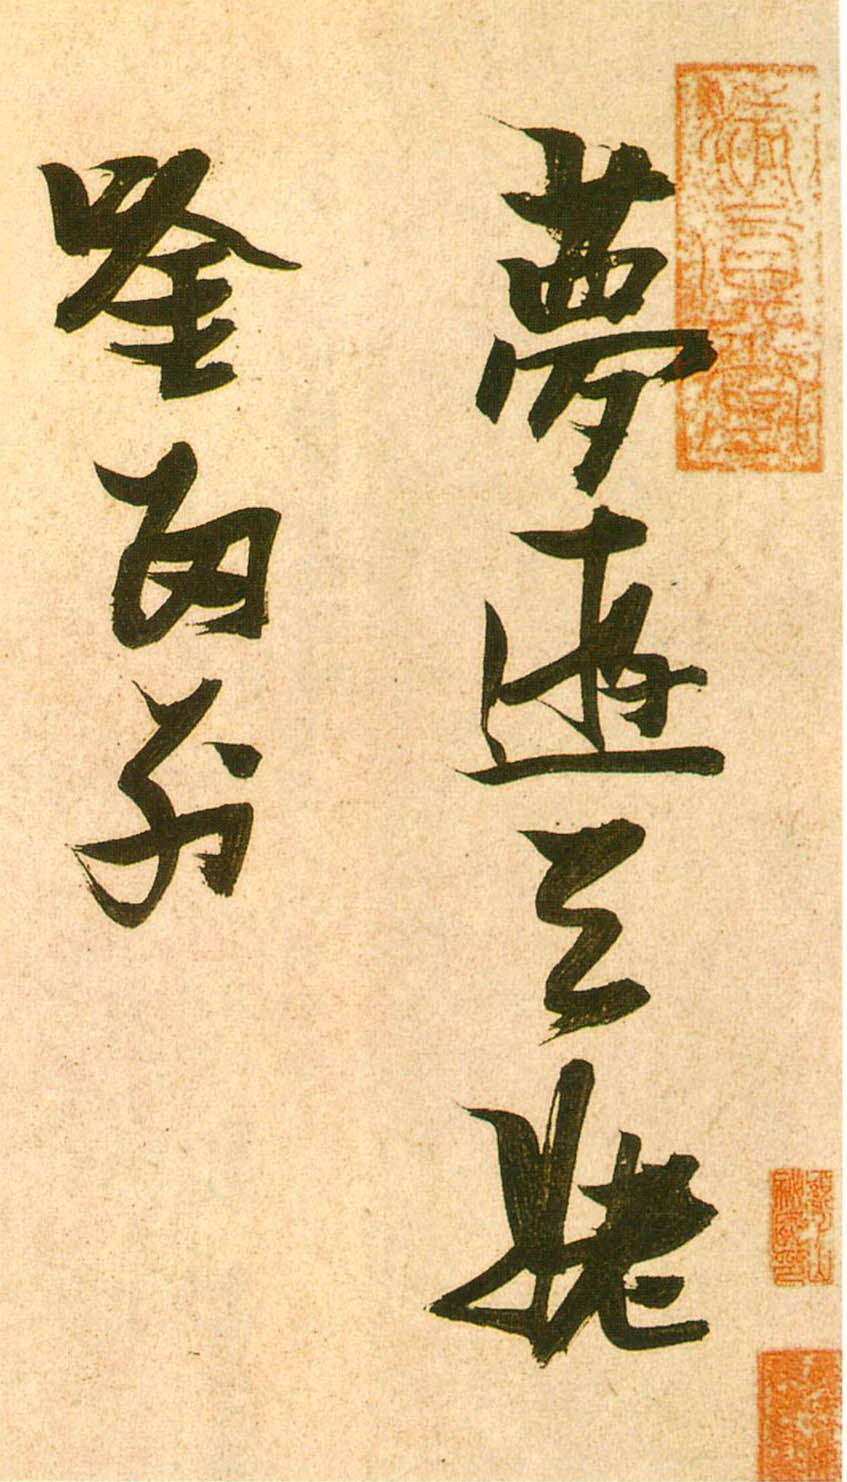 夢遊天姥
唫留別